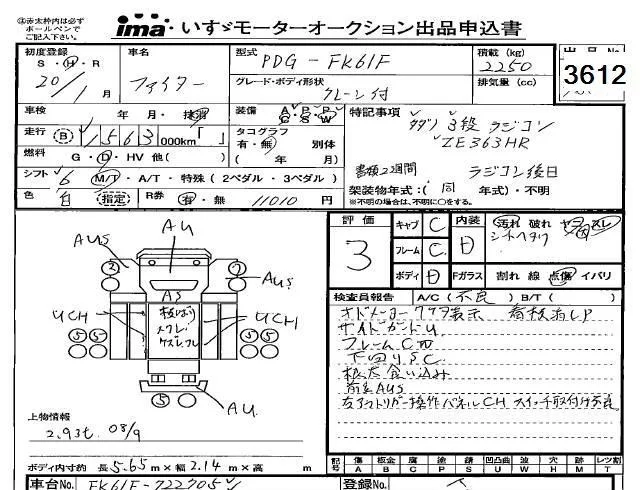 ③赤太枠内は必ず
ボールペンで
ご記入下さい。
ima いすゞモーターオークション出品申込書
初度登録 車名 型式 積載 (kg) 出品No.
S・H・R ファイター PDG-FK61F 2250 3612
20/1月 グレード・ボディ形状 クレーン付 排気量 (cc)
車検 年 月・抹消 装備 A P P C S W 特記事項
走行 B 1563 000km「 」 タコグラフ 有・無 別体 タダノ 3段 ラジコン
燃料 G・D・HV 他( ) ( 年 月) ZE363HR
シフト 6 M/T・A/T・特殊(2ペダル・3ペダル) 書類2週間 ラジコン後日
色 白 指定 R券 有・無 11010 円 架装物年式:(同 年式)・不明
※不明の場合は、不明に○をする。
評価 3 キャブ C 内装 D 汚れ 破れ ヤコゲ穴 スレ
シートヘタリ
フレーム C
ボディ D Fガラス 割れ 線 点傷 イバリ
AUS AU AUS
AS
UCH 板ばり UCH
スワレ
AU
検査員報告 A/C(不良) B/T( )
オドメーター 表示 看板消しP
サイドガードU
フレームC
下回りSC
板太食い込み
前足AUS
右アウトリガー操作パネルCH スイッチ取付け不良
上物情報
2.93t 08/9
ボディ内寸約 長 5.65 m×幅 2.14 m×高 m
記号 傷 板金 腐 塗 錆 凹凸曲 W 穴 跡 レンズ割
A B C P S U W H M T
車台No. FK61F-722705 登録No.